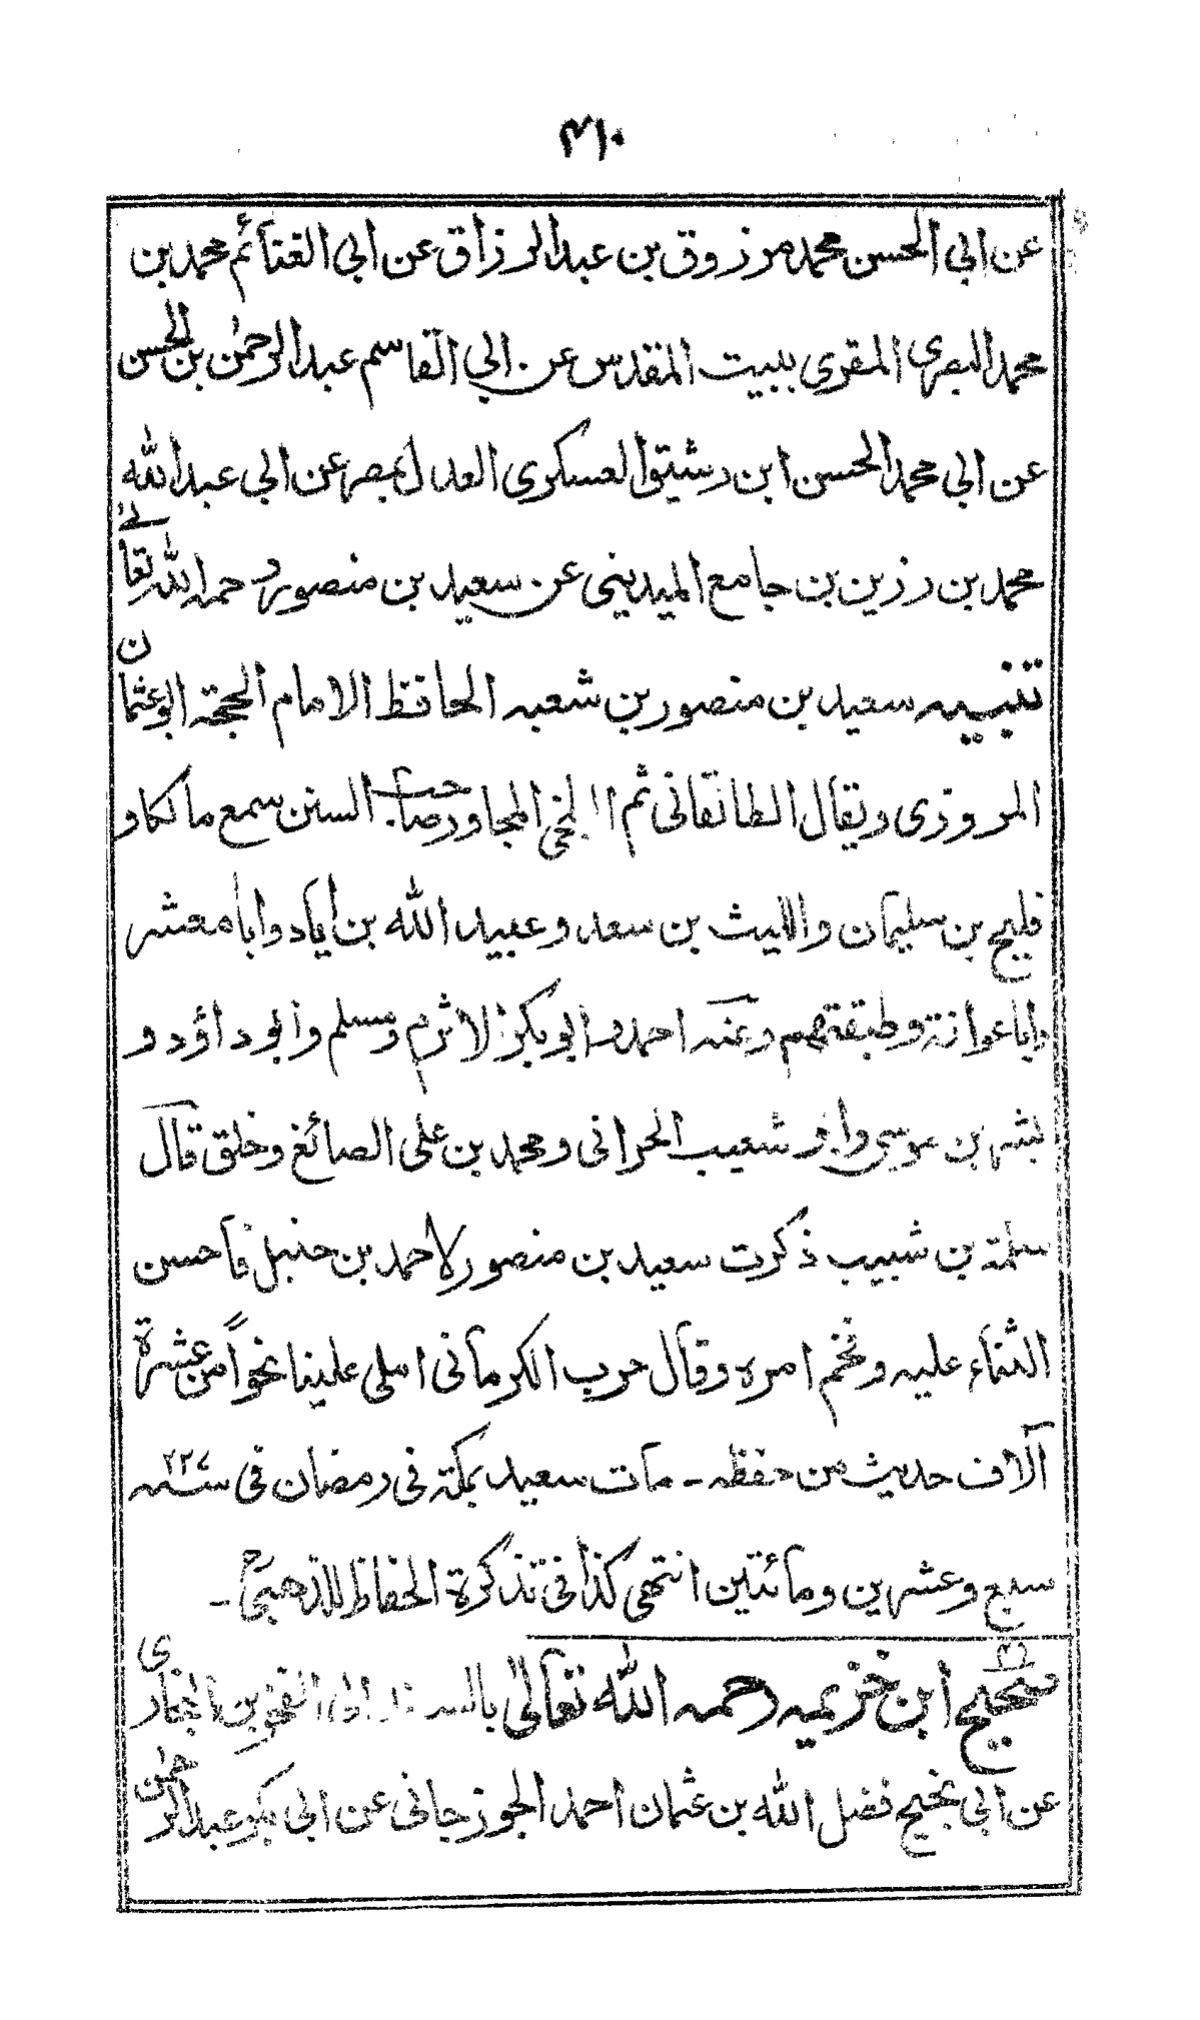 ٣١٠
عن ابي الحسن محمد مرزوق بن عبد الرزاق عن ابي الغنائم محمد بن
محمد البصرى المقرى ببيت المقدس عن ابي القاسم عبد الرحمٰن بن الحسن
عن ابي محمد الحسن ابن رشيق العسكرى العدل بمصر عن ابي عبد الله
محمد بن رزين بن جامع الميديني عن سعيد بن منصور رحمه الله تعالے
تنبيه سعيد بن منصور بن شعبه الحافظ الامام الحجة ابو عثمان
المروزى ويقال الطالقانى ثم البلخى المجاور صاحب السنن سمع مالكا و
فليح بن سليمان والليث بن سعد و عبيد الله بن أياد وابا معشر
وابا عوانة وطبقتهم وعنه احمد و ابو بكر الاثرم ومسلم وابو داؤد و
بشر بن موسى وابو شعيب الحرانى ومحمد بن على الصائغ وخلق قال
سلمة بن شبيب ذكرت سعيد بن منصور لاحمد بن حنبل فاحسن
الثناء عليه وفخم امره وقال حرب الكرمانى املى علينا نحواً من عشرة
آلاف حديث من حفظه ـ مات سعيد بمكة فى رمضان فى سنه ٢٢٧
سبع وعشرين ومائتين انتهى كذا فى تذكرة الحفاظ للذهبىؒ ـ
صحيح ابن خزيمه رحمه الله تعالى بالسند الى الفخر بن البخارى
عن ابي نجيح فضل الله بن عثمان احمد الجوزجانى عن ابي بكر عبد الرحمٰن